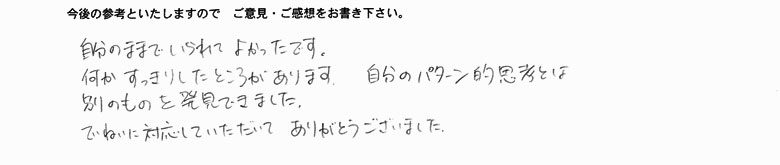 今後の参考といたしますので　ご意見・ご感想をお書き下さい。
自分のままでいられて よかったです。
何か すっきりしたところがあります。 自分のパターン的思考とは
別のものを発見できました。
ていねいに対応していただいて ありがとうございました。